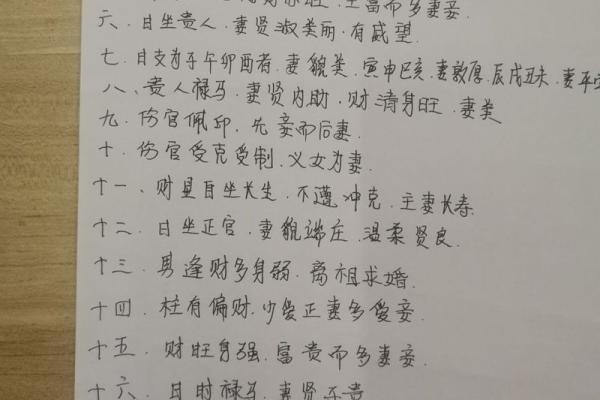 富而多妻妾.
六.日坐贵人.妻贤淑美丽.有威望.
七.日支为子午卯酉者.妻貌美.寅申巳亥.妻敦厚.辰戌丑未.妻平
八、贵人禄马.妻贤内助.财清身旺.妻美
九.伤官佩印.先妾而后妻.
十.伤官受克受制.义女为妻.
十一、财星自坐长生.不遭冲克.主妻长寿.
十二.日坐正官.妻貌端庄.温柔贤良.
十三.男逢财多身弱.离祖求婚.
十四.柱有偏财.少爱正妻多爱妾.
十五.财旺身强.富贵而多妻妾.
十六.日时禄马.妻贤子贵